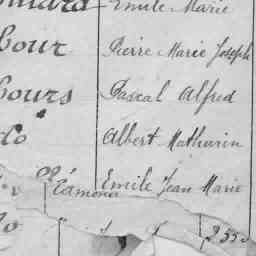 Emile Marie
bour Pierre Marie Joseph
bours Pascal Alfred
do Albert Mathurin
Edmond Emile Jean Marie
do